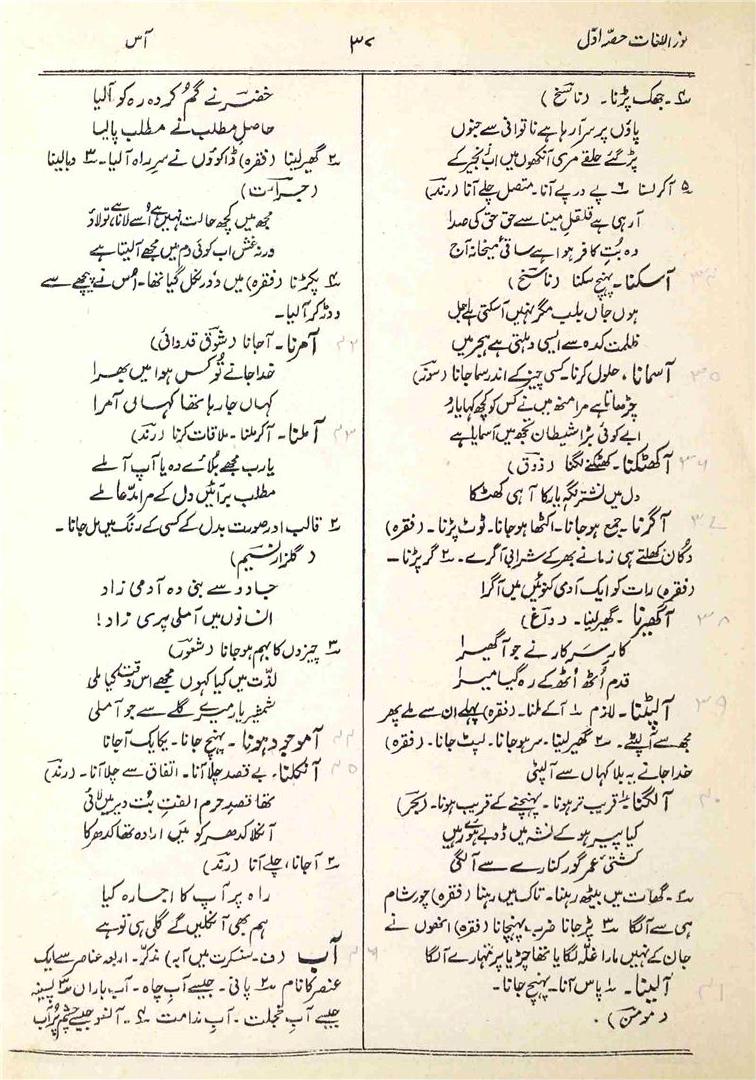 نور اللغات حصہ اوّل
۳۷
آس
۴۔ جھک پڑنا۔ (ناسخ)
پاؤں پر سر آرہا ہے ناتوانی سے جنوں
پڑ گئے حلقے مری آنکھوں میں اب زنجیر کے
۵ آکر لسنا ۶ پے در پے آنا۔ متصل چلے آنا (رند)
آرہی ہے قلقلِ مینا سے حق حق کی صدا
وہ بُت کافر ہوا ہے ساقیٔ میخانہ آج
آسکنا۔ پہنچ سکنا (ناسخ)
ہوں جاں بلب مگر نہیں آسکتی اجل
ظلمت کدہ سے ایسی دہلتی ہے ہجر میں
آسمانا، حلول کرنا۔ کسی چیز کے اندر سما جانا (سوز)
چڑھا آتا ہے مرا منھ میں نے کس کو کچھ کہا یارو
ابے کوئی بڑا شیطان تجھ میں آسمایا ہے
آکھٹکنا۔ کھٹکنے لگنا (ذوق)
دل میں نشتر نگہِ یار کا آہی کھٹکا
آگرنا۔ جمع ہوجانا۔ اکٹھا ہوجانا۔ ٹوٹ پڑنا۔ (فقرہ)
دکان کھلتے ہی زمانے بھر کے شرابی آگرے۔ ۲ گر پڑنا۔
(فقرہ) رات کو ایک آدمی کنوئیں میں آگرا
آگھیرنا۔ گھیر لینا۔ (داغ)
کارِ سرکار نے جو آگھیرا
قدم اُٹھ اُٹھ کے رہ گیا میرا
آلپٹنا۔ لازم ۱ آکے ملنا۔ (فقرہ) پہلے ان سے ملے پھر
مجھ سے آلپٹے۔ ۲ گھیر لینا۔ سر ہوجانا۔ لپٹ جانا۔ (فقرہ)
خدا جانے یہ بلا کہاں سے آلپٹی
آلگنا ۱ قریب تر ہونا۔ پہنچنے کے قریب ہونا۔ (بحر)
کیا پیر ہو کے نشہ میں ڈوبے ہوئے ہیں
کشتیٔ عمر گور کنارے سے آلگی
۲۔ گھات میں بیٹھ رہنا۔ تاک میں رہنا (فقرہ) چور شام
ہی سے آلگا ۳ پڑ جانا ضرب پہنچانا (فقرہ) انھوں نے
جان کے نہیں مارا غلّہ لگایا تھا چڑیا پر تمہارے آلگا
آلینا۔ ۱ پاس آنا۔ پہنچ جانا۔
(مومن)۔
خضر نے گم کردہ رہ کو آلیا
حاصلِ مطلب نے مطلب پالیا
۲ گھیر لینا (فقرہ) ڈاکوؤں نے سرِ راہ آلیا۔ ۳ دبا لینا
(جرأت)
مجھ میں کچھ حالت نہیں ہے اُسے لانا ہے تو لاؤ
ورنہ غش اب کوئی دم میں مجھے آلیتا ہے
۴ پکڑنا (فقرہ) میں دور نکل گیا تھا۔ اُس نے پیچھے سے
دوڑ کر آلیا۔
آمرنا۔ آجانا (شوق قدوائی)
خدا جانے تُو کس ہوا میں بھرا
کہاں جا رہا تھا کہا لی آمرا
آملنا۔ آکر ملنا۔ ملاقات کرنا (رند)
یارب مجھے بُلائے وہ یا آپ آملے
مطلب برآئیں دل کے مرا مدّعا ملے
۲ قالب اور صورت بدل کے کسی کے رنگ میں مل جانا۔
(گلزار نسیم)
جادو سے بنی وہ آدمی زاد
انسانوں میں آملی پری زاد!
۳ چیزوں کا بہم ہوجانا (شعور)
لذّت میں کیا کہوں مجھے اس وقت کی ملی
شمشیرِ یار میرے گلے سے جو آملی
آموجود ہونا۔ پہنچ جانا۔ یکایک آجانا
آنکلنا۔ بے قصد چلا آنا۔ اتفاق سے چلا آنا۔ (رند)
تھا قصدِ حرم الفتِ بُت دیر میں لائی
آنکلا کدھر کو میں ارادہ تھا کدھر کا
۲ آجانا، چلے آنا (رند)
راہ پر آپ کا اجارہ کیا
ہم بھی آنکلیں گے گلی ہی تو ہے
آب (ف۔ سنسکرت میں آپہ) مذکّر۔ اربعہ عناصر سے ایک
عنصر کا نام ۲ پانی۔ جیسے آبِ چاہ۔ آبِ باراں ۳ پسینہ
جیسے آبِ خجلت۔ آبِ ندامت ۴۔ آنسو جیسے چشمِ پُر آب